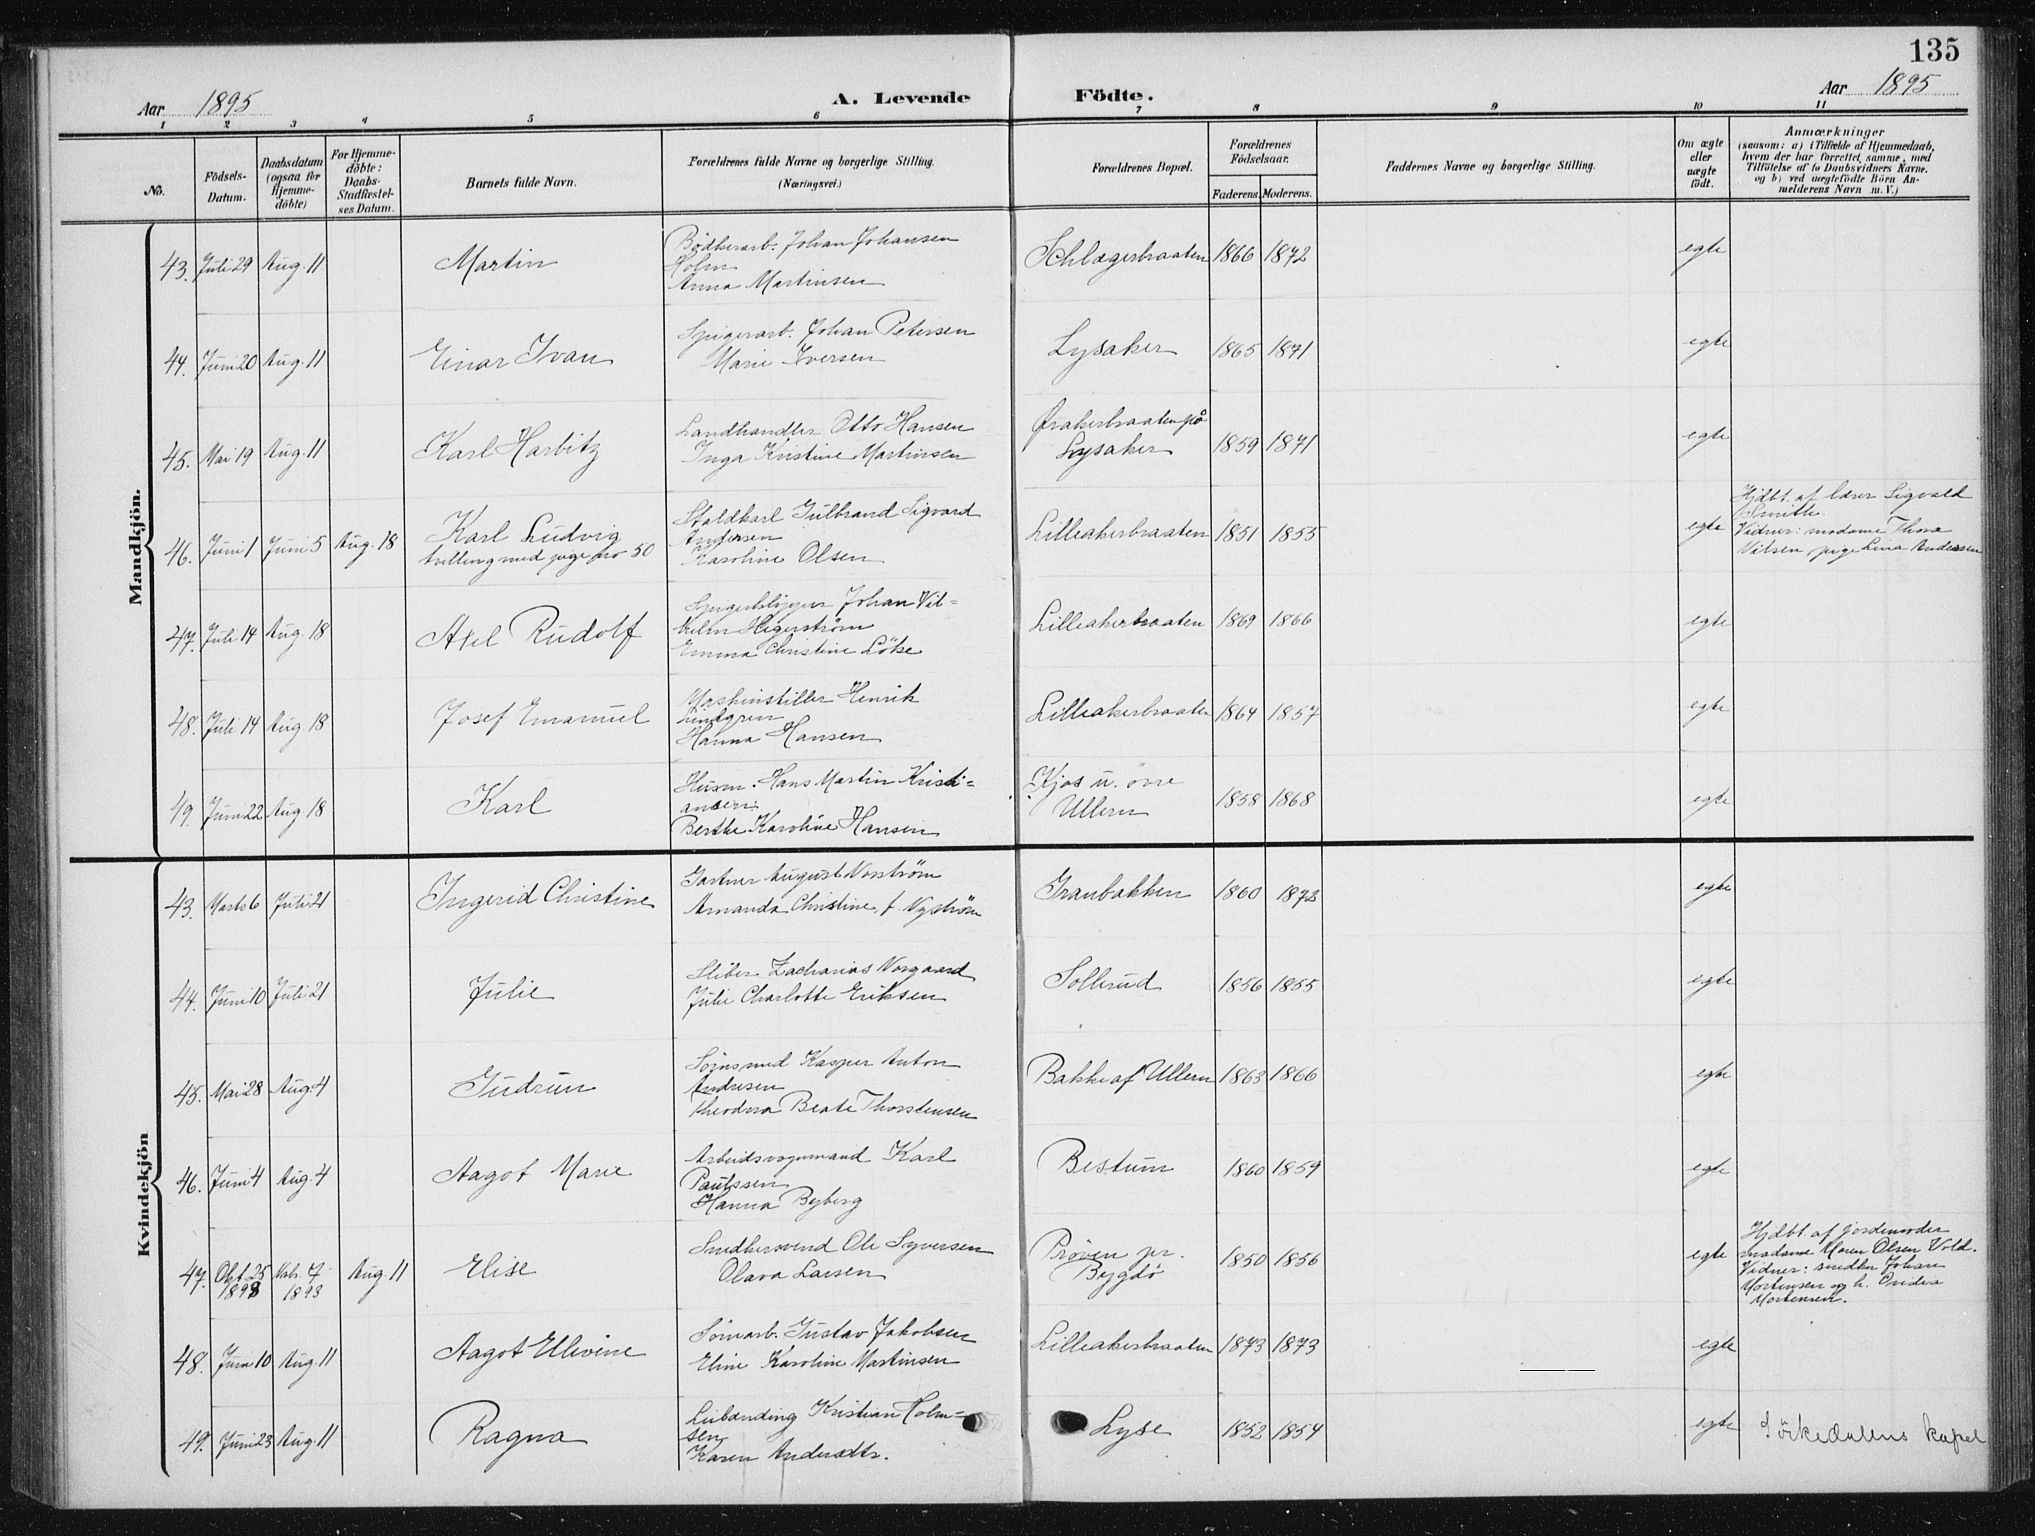 135
Aar 1895
A. Levende Födte.
Aar 1895
1 2 3 4 5 6 7 8 9 10 11
No.
Födsels-
Datum.
Daabsdatum
(ogsaa for
Hjemme-
döbte)
For Hjemme-
döbte:
Daabs-
Stadfæstel-
ses Datum.
Barnets fulde Navn.
Forældrenes fulde Navne og borgerlige Stilling.
(Næringsvei.)
Forældrenes Bopæl.
Forældrenes
Födselsaar.
Faderens. Moderens.
Faddernes Navne og borgerlige Stilling.
Om ægte
eller
uægte
födt.
Anmærkninger
(saasom: a) i Tilfælde af Hjemmedaab,
hvem der har forrettet samme, med
Tilföielse af to Daabsvidners Navne,
og b) ved uægtefödte Börn An-
melderens Navn m. V.)
Mandkjön.
43. Juli 29 Aug. 11 Martin
Bødkerarb. Johan Johansen
Holm
Anna Martinsen
Schlagerbraaten 1866 1872 egte
44. Juni 20 Aug. 11 Einar Ivan
Spigerarb. Johan Petersen
Marie Iversen
Lysaker 1865 1871 egte
45. Mai 19 Aug. 11 Karl Harbitz
Landhandler Otto Hansen
Inga Kristine Martinsen
Ørakerbraaten på
Lysaker 1859 1871 egte
46. Juni 1 Juni 5 Aug. 18 Karl Ludvig
tvilling med pige no 50
Staldkarl Gulbrand Sigvard
Andersen
Karoline Olsen
Lilleakerbraaten 1851 1855 egte
Hjdbt. af lærer Sigvald
Smith.
Vidner: madame Thora
Nilsen, pige Lina Andersen
47. Juli 14 Aug. 18 Axel Rudolf
Spigerklipper Johan Vil-
helm Hegerstrøm
Emma Christine Löke
Lilleakerbraaten 1869 1866 egte
48. Juli 14 Aug. 18 Josef Emanuel
Maskinstiller Henrik
Lindgren
Hanna Hansen
Lilleakerbraaten 1864 1857 egte
49. Juni 22 Aug. 18 Karl
Husm. Hans Martin Kristi-
ansen
Berthe Karoline Hansen
Kjos u. övre
Ullern 1858 1868 egte
Kvindekjön
43. Marts 6 Juli 21 Ingerid Christine
Gartner August Norström
Amanda Christine f. Nyström
Granbakken 1860 1872 egte
44. Juni 10 Juli 21 Julie
Sliber Zacharias Norgaard
Julie Charlotte Eriksen
Sollerud 1856 1855 egte
45. Mai 28 Aug. 4 Gudrun
Kasper Anton
Andresen
Theodora Beate Thorstensen
Bakke af Ullern 1863 1866 egte
46. Juni 4 Aug. 4 Aagot Marie
Arbeidsvognmand Karl
Paulssen
Hanna Byberg
Bestum 1860 1859 egte
47. Okt. 25
1893 7
1893 Aug. 11 Elise
Snedkersvend Ole Syversen
Olava Larsen
Prøven pr.
Bygdö 1850 1856 egte
Hjdbt. af jordemoder
madame Maren Olsen Vold.
Vidner: snedker Johan
Mortensen og h. Ondia
Mortensen.
48. Juni 10 Aug. 11 Aagot Ellevine
Sömarb. Gustav Jakobsen
Eline Karoline Martinsen
Lilleakerbraaten 1873 1873 egte
49. Juni 23 Aug. 11 Ragna
Kristian Holm-
sen
Karen Andersdtr.
Lyse 1852 1854 egte
Sörkedalens kapel